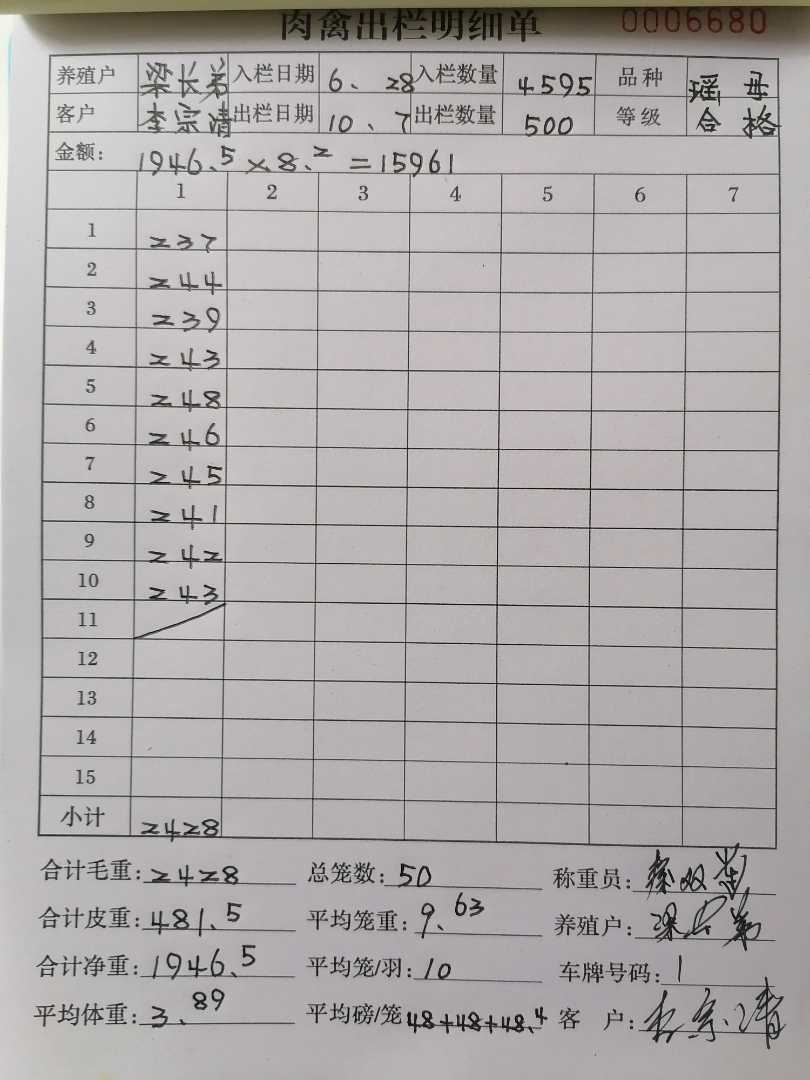 肉禽出栏明细单 0006680
养殖户 梁长弟 入栏日期 6、28 入栏数量 4595 品种 瑶母
客户 李宗清 出栏日期 10、7 出栏数量 500 等级 合格
金额: 1946.5×8.2=15961
1 2 3 4 5 6 7
1 237
2 244
3 239
4 243
5 248
6 246
7 245
8 241
9 242
10 243
11
12
13
14
15
小计 2428
合计毛重: 2428 总笼数: 50 称重员:
合计皮重: 481.5 平均笼重: 9.63 养殖户: 梁长弟
合计净重: 1946.5 平均笼/羽: 10 车牌号码: 1
平均体重: 3.89 平均磅/笼 48+48+48.4 客户: 李宗清